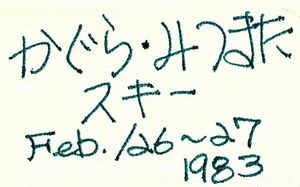 かぐら・みつまた
スキー
Feb. /26～27
1983